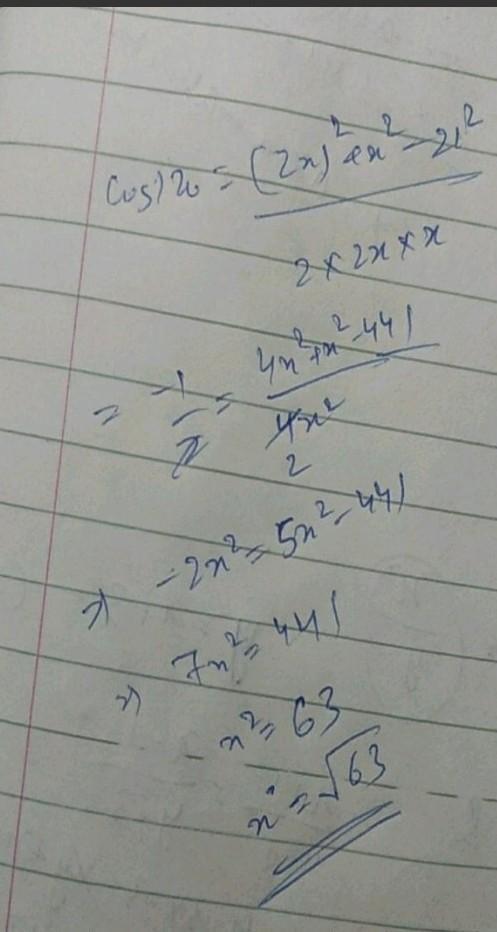 cos120 = (2x)² + x² - 21²
2 × 2x × x
= -1/2 = 4x² + x² - 441 / 4x²
2
⇒ -2x² = 5x² - 441
⇒ 7x² = 441
x² = 63
x = √63